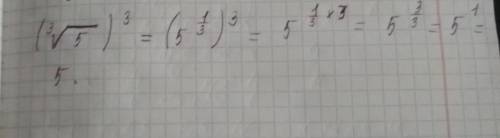 (∛5)³ = (5^(1/3))³ = 5^(1/3 × 3) = 5^(3/3) = 5^1 =
5.